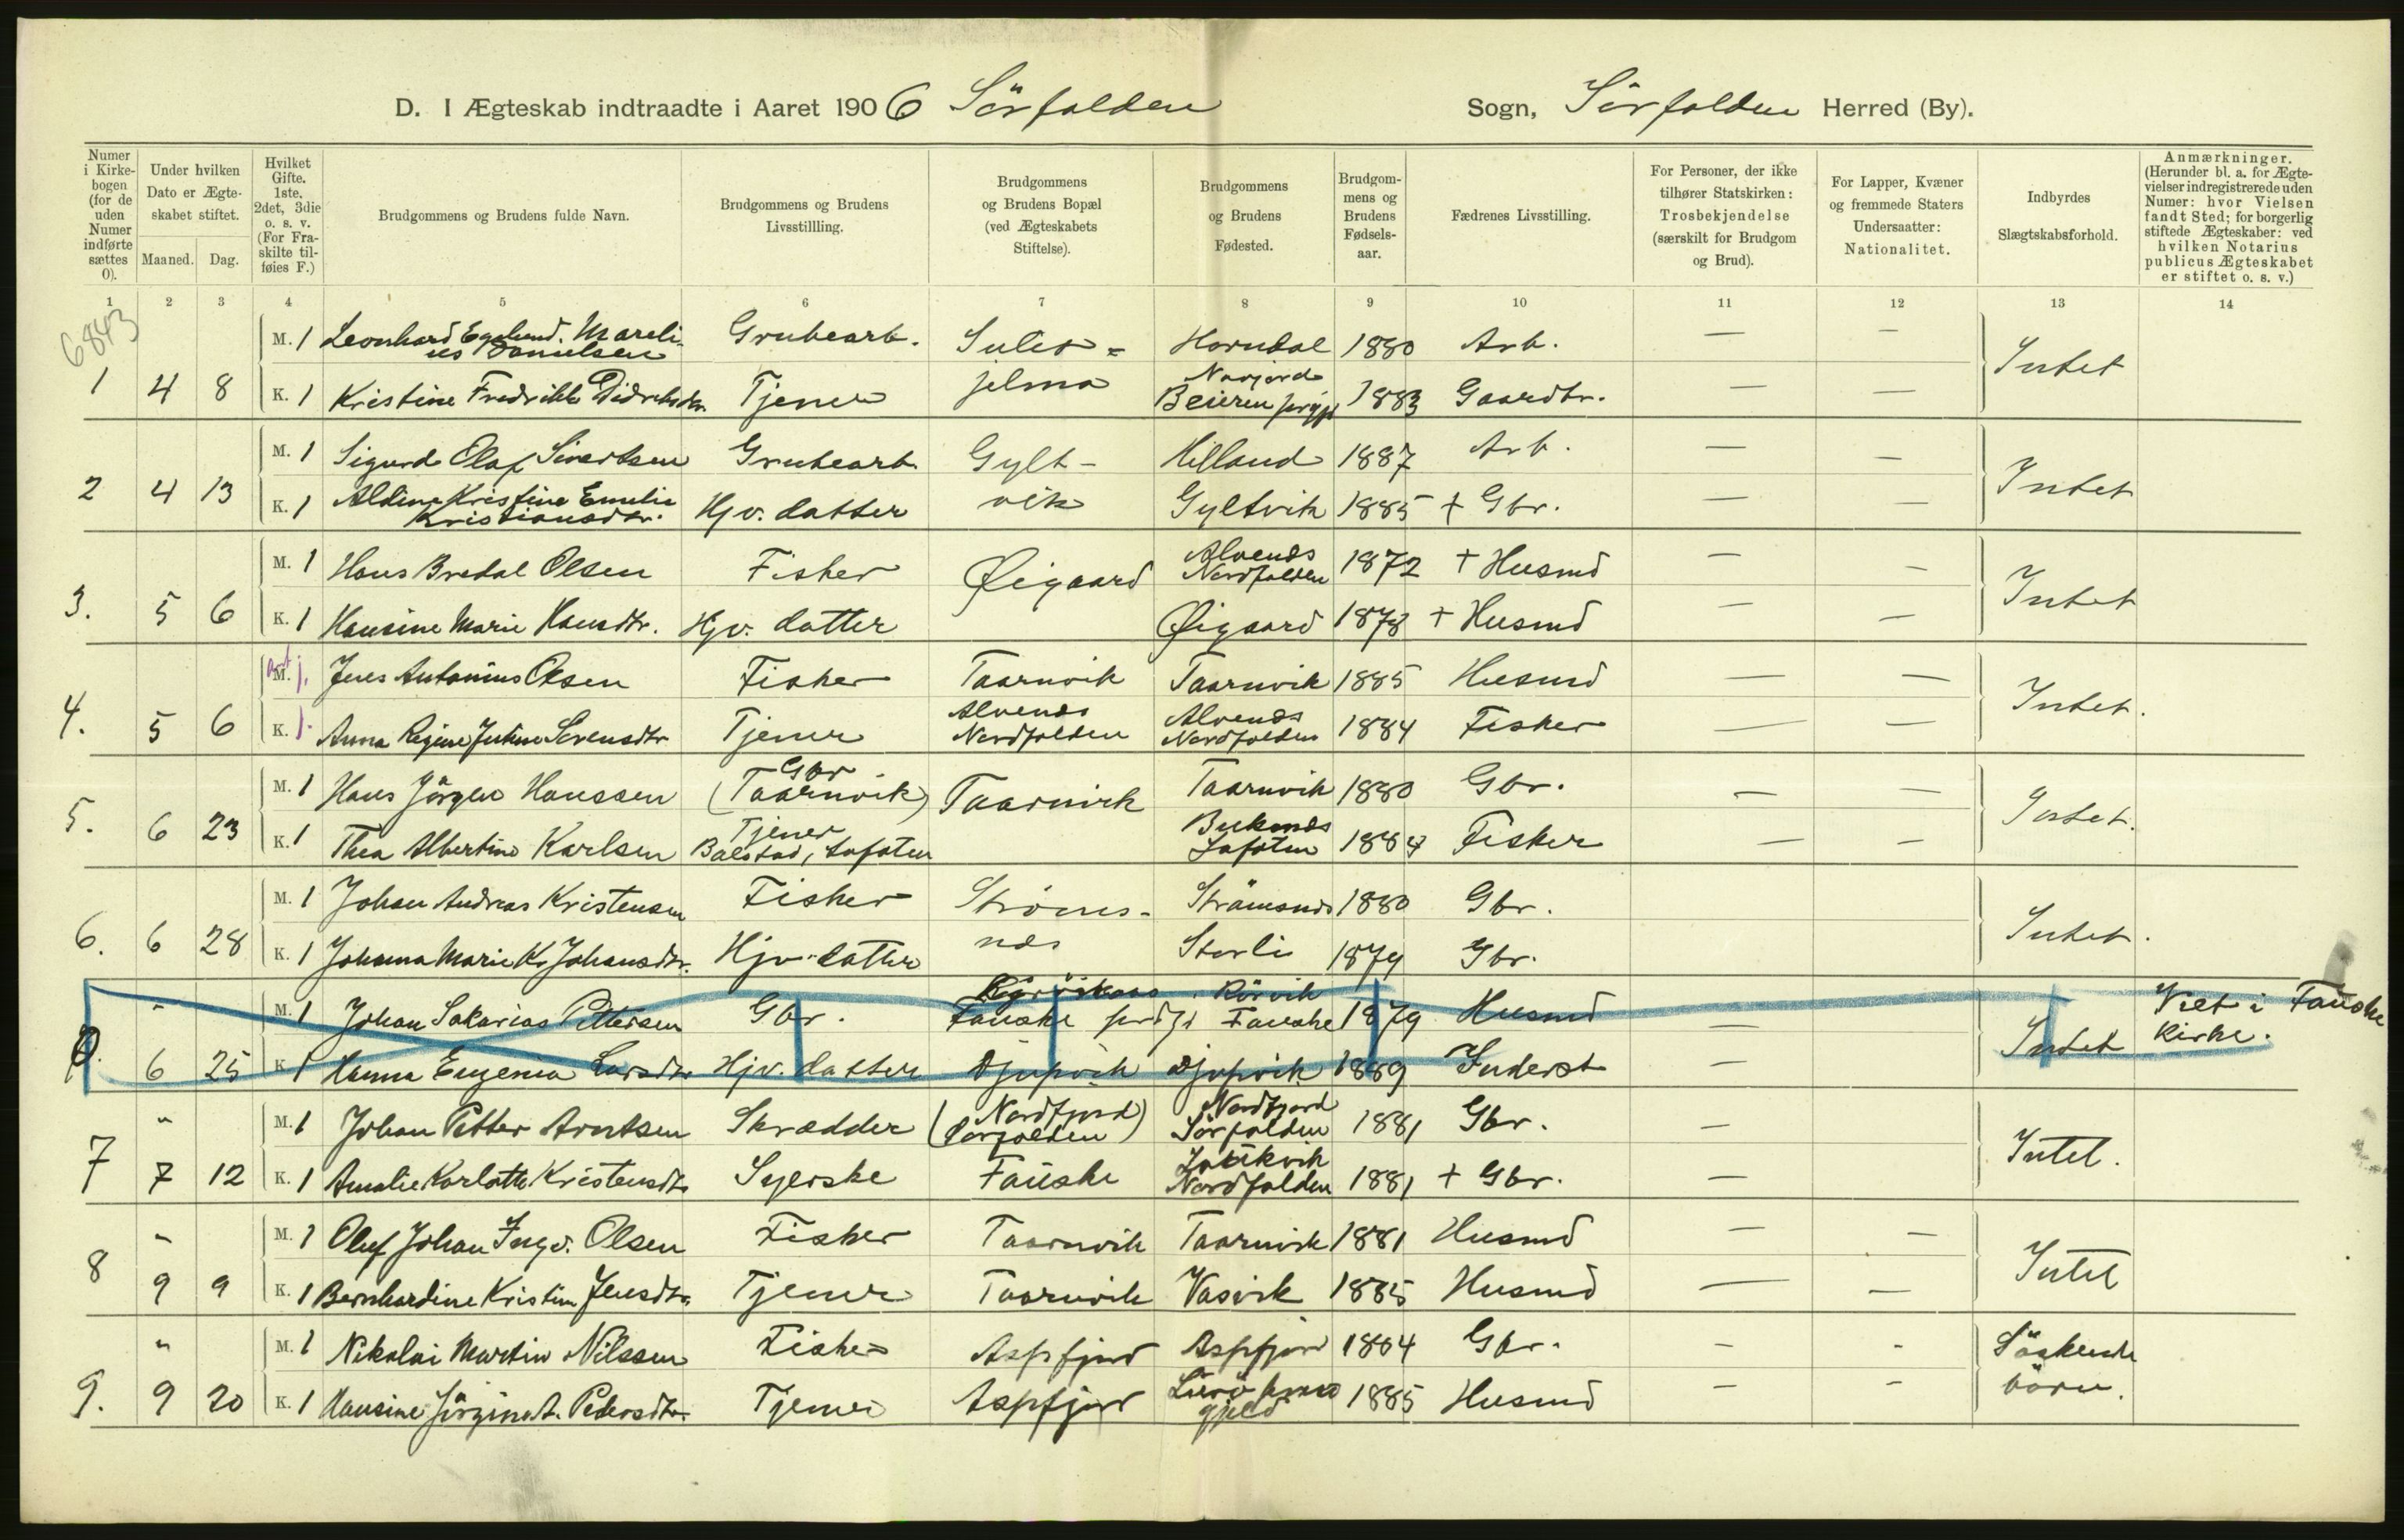 D. I Ægteskab indtraadte i Aaret 1906 Sörfolden Sogn, Sörfolden Herred (By).
Numer i Kirkebogen (for de uden Numer indførte sættes 0).
Under hvilken Dato er Ægteskabet stiftet.
Maaned. Dag.
Hvilket Gifte. 1ste, 2det, 3die o. s. v. (For Fraskilte tilføies F.)
Brudgommens og Brudens fulde Navn.
Brudgommens og Brudens Livsstillling.
Brudgommens og Brudens Bopæl (ved Ægteskabets Stiftelse).
Brudgommens og Brudens Fødested.
Brudgommens og Brudens Fødselsaar.
Fædrenes Livsstilling.
For Personer, der ikke tilhører Statskirken: Trosbekjendelse (særskilt for Brudgom og Brud).
For Lapper, Kvæner og fremmede Staters Undersaatter: Nationalitet.
Indbyrdes Slægtskabsforhold.
Anmærkninger. (Herunder bl. a. for Ægtevielser indregistrerede uden Numer: hvor Vielsen fandt Sted; for borgerlig stiftede Ægteskaber: ved hvilken Notarius publicus Ægteskabet er stiftet o. s. v.)
1 2 3 4 5 6 7 8 9 10 11 12 13 14
6843
M. 1 Leonhard Egelund. Marelius Danielsen Grubearb. Sulit- Horndal 1880 Arb. — — Intet
1 4 8 K. 1 Kristine Fredrikke Didriksdtr. Tjener jelma Beieren prgjd 1883 Gaardbr. — —
M. 1 Sigurd Olaf Sivertsen Grubearb. Gylt- Helland 1887 Arb. — — Intet
2 4 13 K. 1 Aldine Kristine Emelie Kristiansdtr. Hjv. datter vik Gyltvik 1885 + Gbr. — —
M. 1 Hans Bredal Olsen Fisker Øigaard Alvenes Nordfolden 1872 + Husmd — — Intet
3. 5 6 K. 1 Hansine Marie Hansdtr. Hjv. datter Øigaard 1878 + Husmd — —
M. 1. Jens Antonius Olsen Fisker Taarnvik Taarnvik 1885 Husmd — — Intet.
4. 5 6 K. 1. Anna Regine Sörensdtr Tjener Alvenes Nordfolden Alvenes Nordfolden 1884 Fisker — —
M. 1 Hans Jörgen Hanssen Gbr (Taarnvik) Taarnvik Taarnvik 1880 Gbr. — — Intet.
5. 6 23 K. 1 Thea Albertine Karlsen Tjener Balstad, Lofoten Buknes Lofoten 1884 Fisker — —
M. 1 Johan Andreas Kristensen Fisker Ströms- Strömsnes 1880 Gbr. Intet.
6. 6 28 K. 1 Johanna Marie K. Johansdtr. Hjv. datter nes Storli 1879 Gbr.
" M. 1 Johan Sakarias Pettersen Gbr. Fauske prdgj Rörvik Fauske 1879 Husmd — Intet Viet i Fauske Kirke.
0. 6 25 K. 1 Hanna Eugenia Larsdtr Hjv. datter Djupvik Djupvik 1889 Inderst —
" M. 1 Johan Petter Arntsen Skrædder (Nordfjord Sörfolden) Nordfjord Sörfolden 1881 Gbr. — Intet.
7 7 12 K. 1 Amalie Karlotte Kristensdtr Syerske Fauske Nordfolden 1881 + Gbr. —
" M. 1 Oluf Johan Ingv. Olsen Fisker Taarnvik Taarnvik 1881 Husmd — — Intet
8 9 9 K. 1 Bernhardine Kristine Jensdtr. Tjener Taarnvik Vasvik 1885 Husmd — —
" M. 1 Nikolai Martin Nilssen Fisker Aspfjord Aspfjord 1864 Gbr. — - Söskende
9. 9 20 K. 1 Hansine Jörgine A. Pedersdtr. Tjener Aspfjord Lurö gjeld 1885 Husmd — - börn.